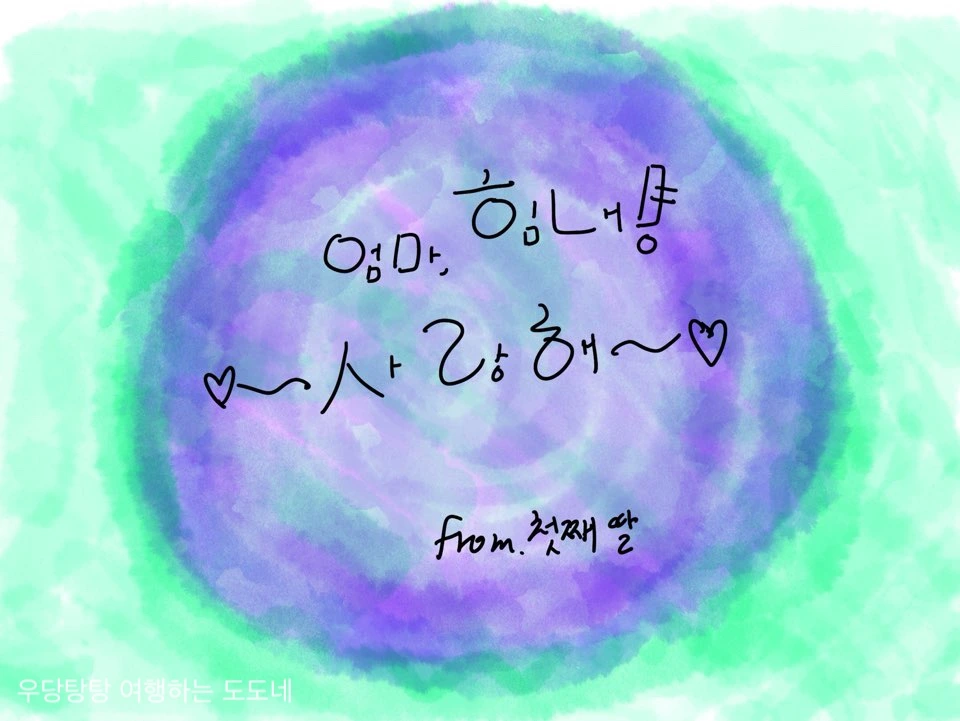 엄마, 힘내!
♡~사랑해~♡
from. 첫째 딸
우당탕탕 여행하는 도도네